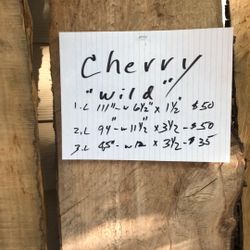 Cherry
"wild"
1. L 111" - w 6 1/2" x 1 1/2 $50
2. L 94" - w 11 1/2" x 3 1/2 - $50
3. L 45" - w 12 x 3 1/2 - $35